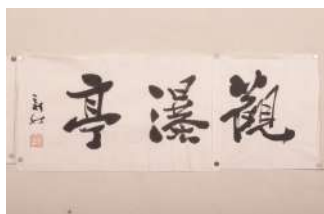 觀瀑亭